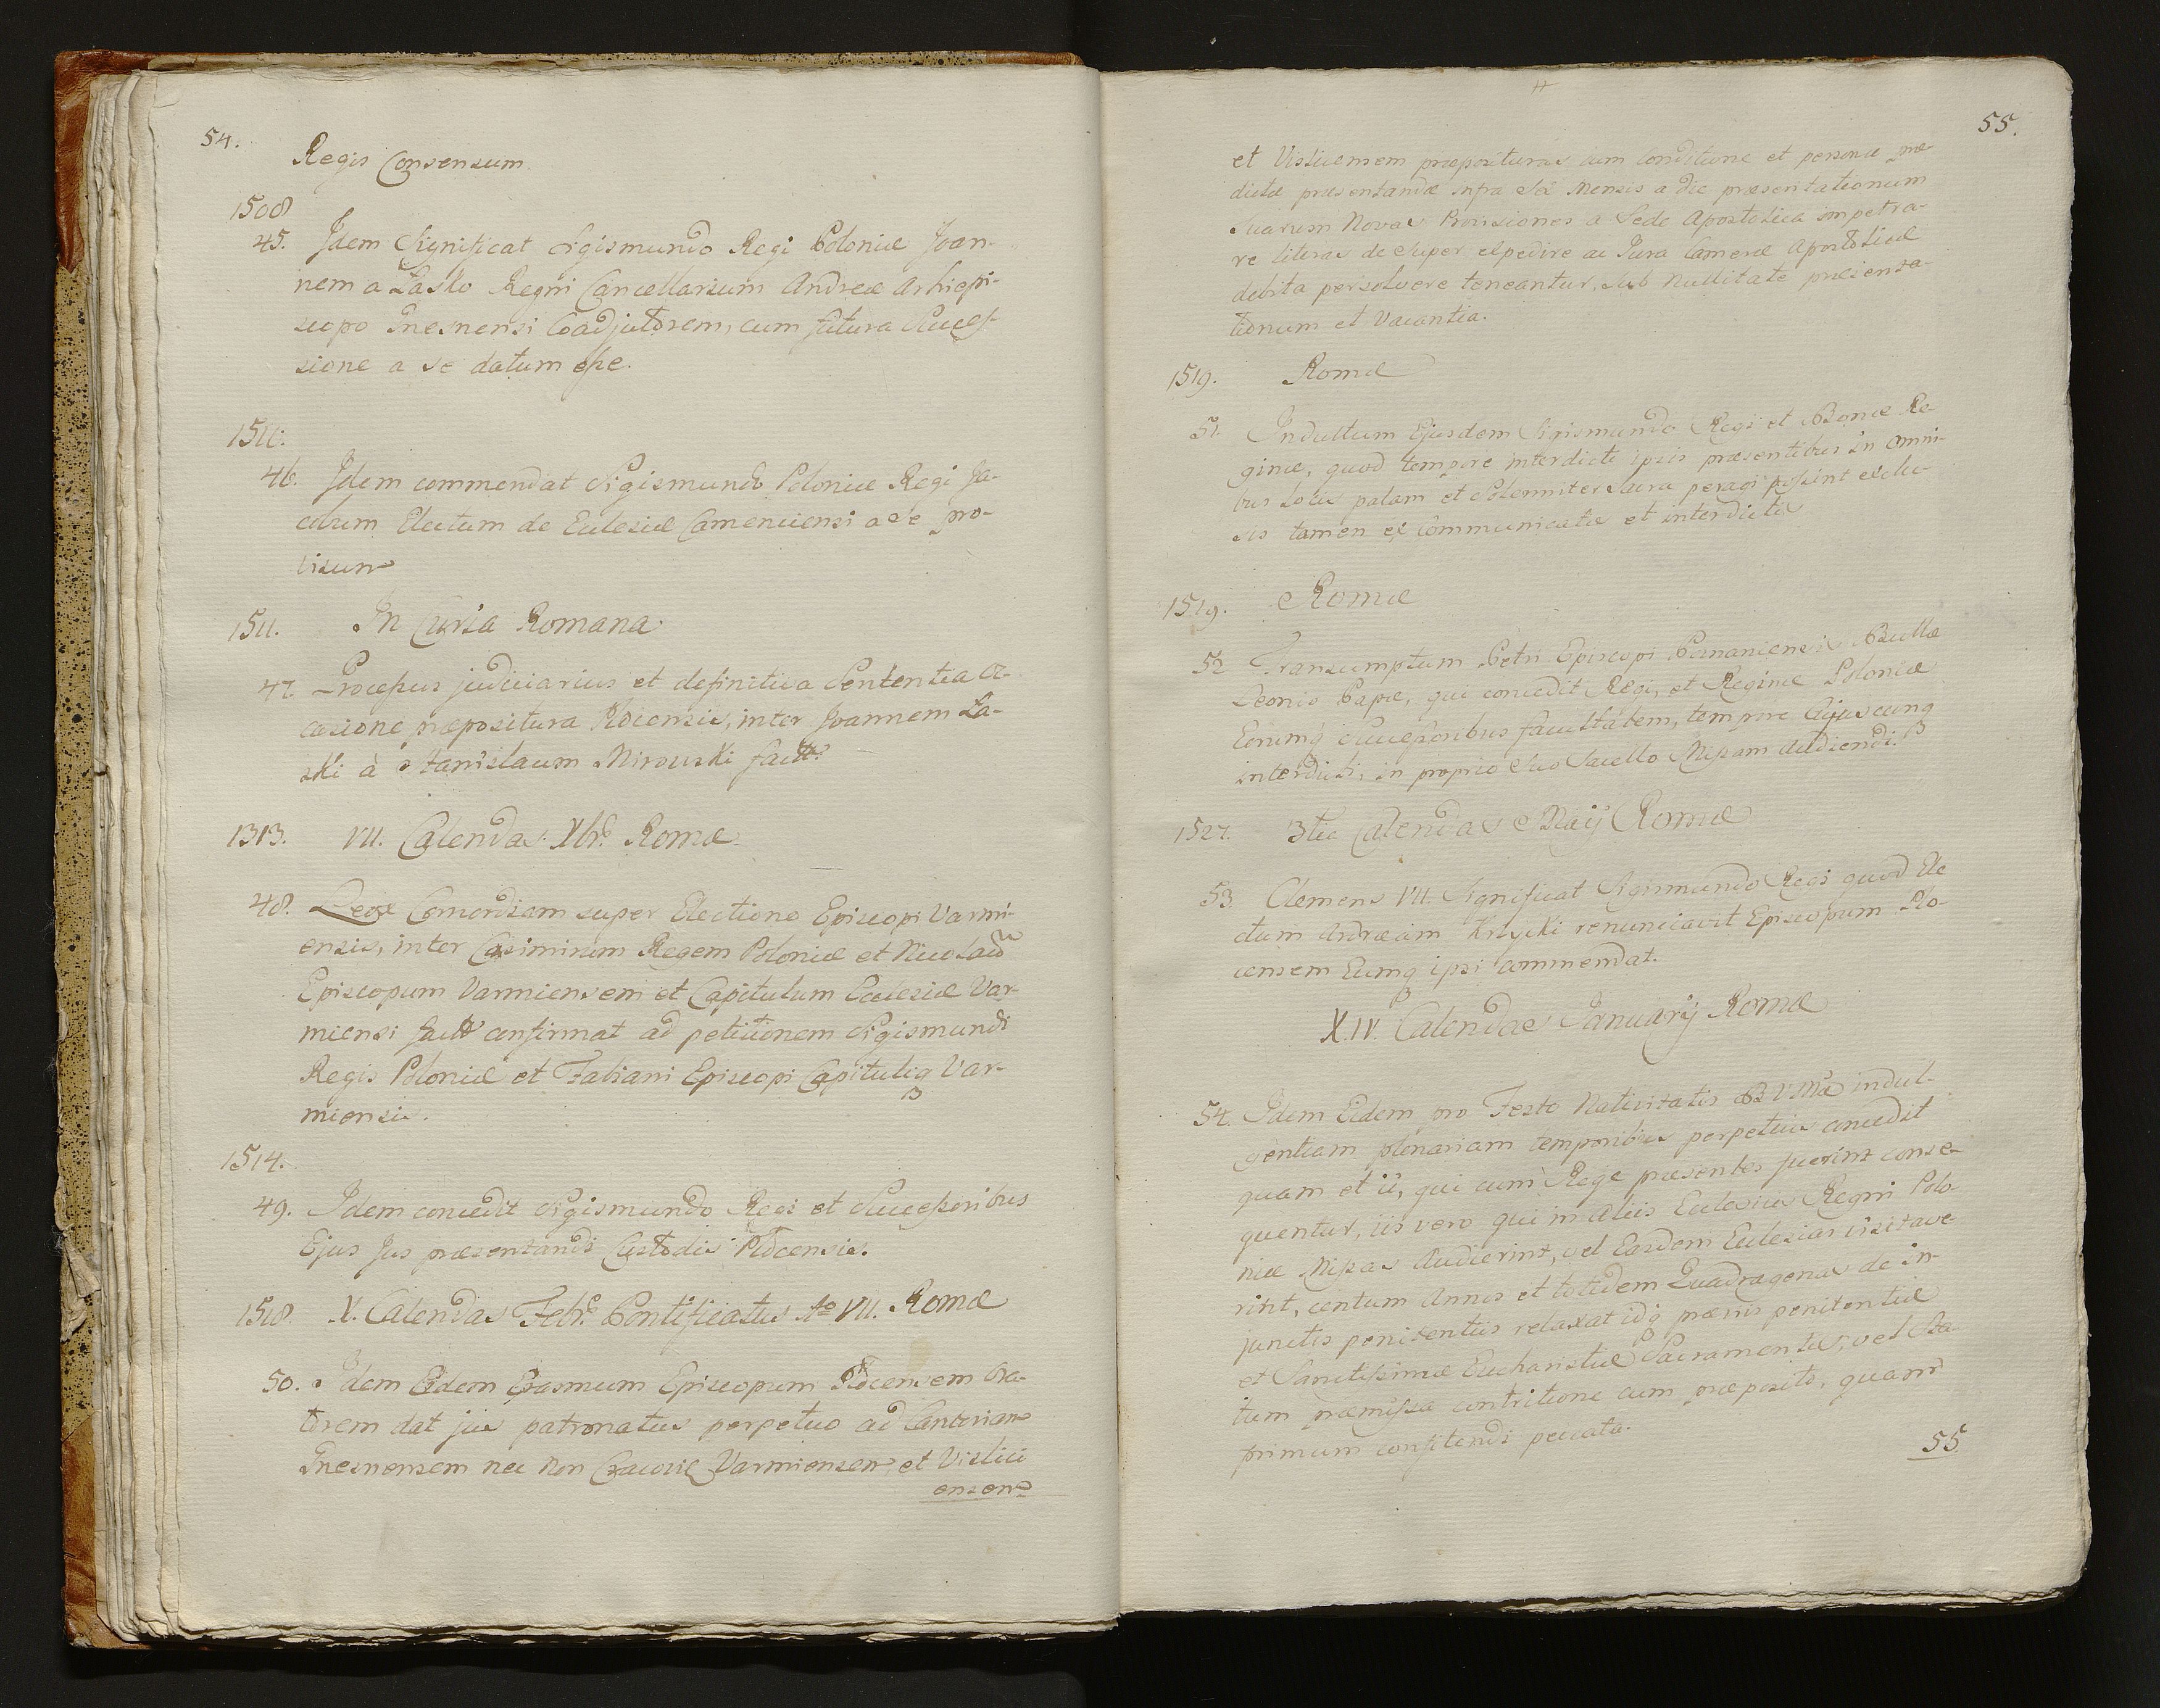 54.
Regis Consensum
1508
45. Idem Significat Sigismundo Regi Poloniæ Joan-
nem a Łasko Regni Cancellarium Andreæ Arhiepi-
scopo Gnesnensi Coadjutorem, cum futura Succes-
sione a se datum esse.
1511.
46. Idem commendat Sigismundo Poloniæ Regi Ja-
cobum Electum de Eclesiæ Camenecensi a se pro-
visum
1511. In Curia Romana
47. Processus judiciarius et definitiva Sententia oc-
casione præpositura Plocensis, inter Joannem Ła-
ski à Stanislaum Mirowski facta
1513. VII. Calendas Xbr. Romæ
48. Leo X Concordiam super Electione Episcopi Varmi-
ensis, inter Casimirum Regem Poloniæ et Nicolaum
Episcopum Varmiensem et Capitulum Ecclesiæ Var-
miensi facta confirmat ad petitionem Sigismundi
Regis Poloniæ et Fabiani Episcopi Capituliq Var-
miensis.
1514.
49. Idem concedit Sigismundo Regi et Successoribus
Ejus Jus præsentandi Custodis Plocensis.
1518. X. Calendas Febr. Pontificatus Ao VII. Romæ
50. Idem Eidem Erasmum Episcopum Plocensem Ora-
torem dat jus patronatus perpetuo ad Cantorian
Gnesnensem nec non Cracoviæ Varmiensem, et Vislici
ensem
55.
et Visliciensem præposituras cum conditione et personæ præ-
dictæ præsentandæ infra Sex Mensis a die præsentationum
Suarum Novas Provisiones a Sede Apostolica impetra-
re literas de super expedire ac Jura Cameræ Apostolicæ
debita persolvere teneantur, sub Nullitate præsenta-
tionum et Vacantia.
1519. Romæ
51. Indultum Ejusdem Sigismundo Regi et Bonæ Re-
ginæ, quod tempore interdicti ipsis præsentibus in omni-
bus Locis palam et Solemniter Sacra peragi possint exclu-
sis tamen ex communicatis et interdictis
1519. Romæ
52 Transumptum Petri Episcopi Posnaniensis Bullæ
Leonis Papæ, qui concedit Regi, et Reginæ Poloniæ
Eorumq Successoribus facultatem, tempore cujuscunq
interdicti, in proprio Suo Sacello Missam Audiendi.
1527. 3tia Calendas Maij Romæ
53. Clemens VII. Significat Sigismundo Regi quod Ele
ctum Andræam Krzycki renunciavit Episcopum Plo-
censem Eumq ipsi commendat.
X.IV. Calendas Januarij Romæ
54. Idem Eidem pro Festo Nativitatis B V Mæ indul-
gentiam plenariam temporibus perpetuis concedit
quam et ii, qui cum Rege præsentes fuerint conse-
quentur, iis vero qui in aliis Ecclesiis Regni Polo-
niæ Missas Audierint, vel Easdem Eclesias visitave-
rint, centum Annos et totidem Quadragenas de in-
junctis penitentiis relaxat idq præviis penitentiæ
et Sanctissimæ Eucharistiæ Sacramentis, vel Sta
tum præmissa contritione cum præposito, quam
primum confitendi peccata.
55